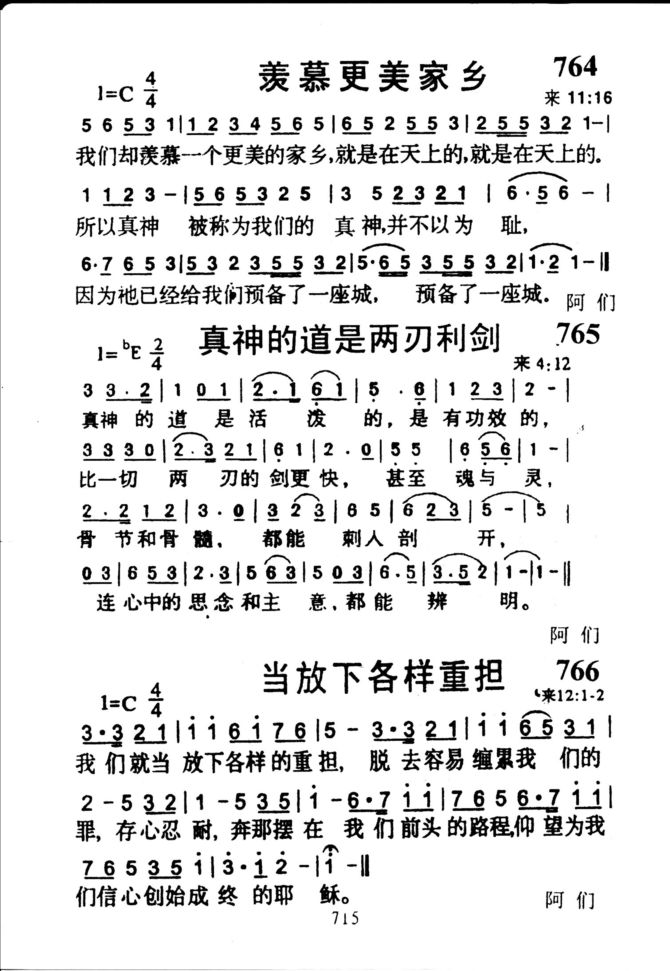 羡慕更美家乡 764
1=C 4/4 来 11:16
5 6 5 3 1|1 2 3 4 5 6 5|6 5 2 5 5 3|2 5 5 3 2 1-|
我们却羡慕一个更美的家乡,就是在天上的,就是在天上的.
1 1 2 3 -|5 6 5 3 2 5|3 5 2 3 2 1|6·5 6 -|
所以真神 被称为我们的 真神,并不以为 耻,
6·7 6 5 3|5 3 2 3 5 5 3 2|5·6 5 3 5 5 3 2|1·2 1-‖
因为祂已经给我们预备了一座城, 预备了一座城. 阿们
真神的道是两刃利剑 765
1=bE 2/4 来 4:12
3 3·2|1 0 1|2·1 6 1|5·6|1 2 3|2 -|
真神 的 道 是 活 泼 的, 是 有功效 的,
3 3 3 0|2·3 2 1|6 1|2·0|5 5|6 5 6|1 -|
比一切 两 刃的 剑更 快, 甚至 魂与 灵,
2·2 1 2|3·0|3 2 3|6 5|6 2 3|5 -|5
骨 节和骨 髓, 都能 刺人 剖 开,
0 3|6 5 3|2·3|5 6 3|5 0 3|6·5|3·5 2|1-|1-‖
连 心中的 思念 和主 意,都能 辨 明。
阿们
当放下各样重担 766
1=C 4/4 来12:1-2
3·3 2 1|1 1 6 1 7 6|5 - 3·3 2 1|1 1 6 5 3 1|
我们就当 放下各样的重担, 脱 去容易 缠累我 们的
2 - 5 3 2|1 - 5 3 5|1 - 6·7 1 1|7 6 5 6·7 1 1|
罪, 存心忍 耐, 奔那摆 在 我 们前头的路程,仰 望为我
7 6 5 3 5 1|3·1 2 -|1 -‖
们信心创始成 终 的耶 稣。 阿们
715